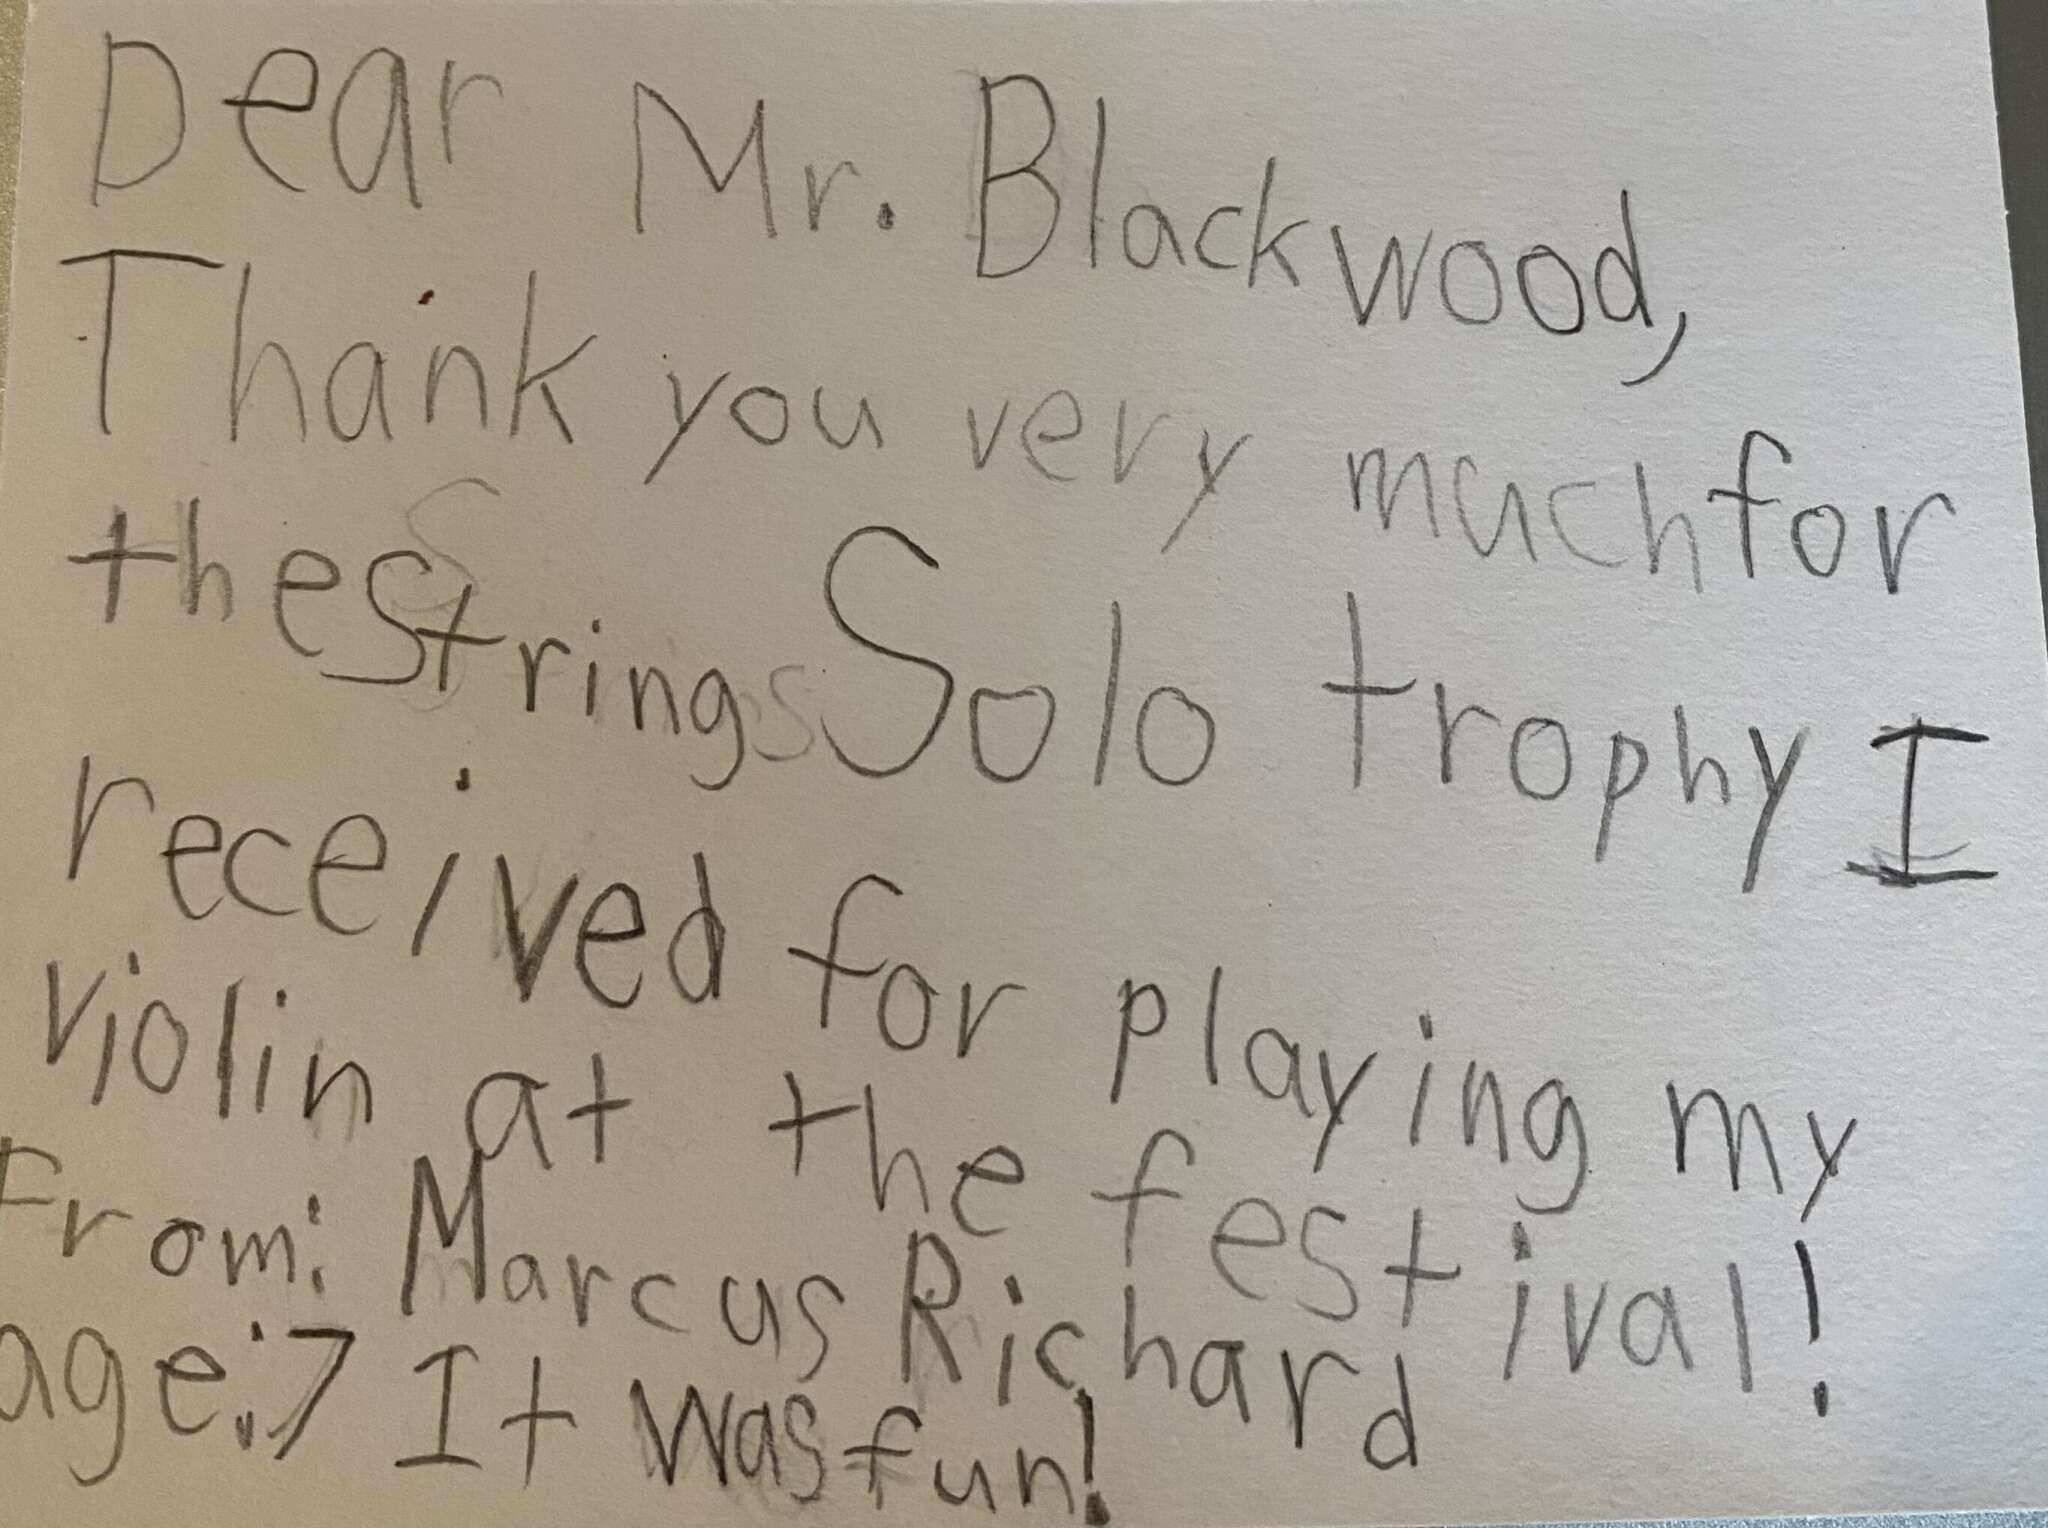 Dear Mr. Blackwood,
Thank you very much for
the Strings Solo trophy I
received for playing my
violin at the festival!
From: Marcus Richard
age: 7 It was fun!